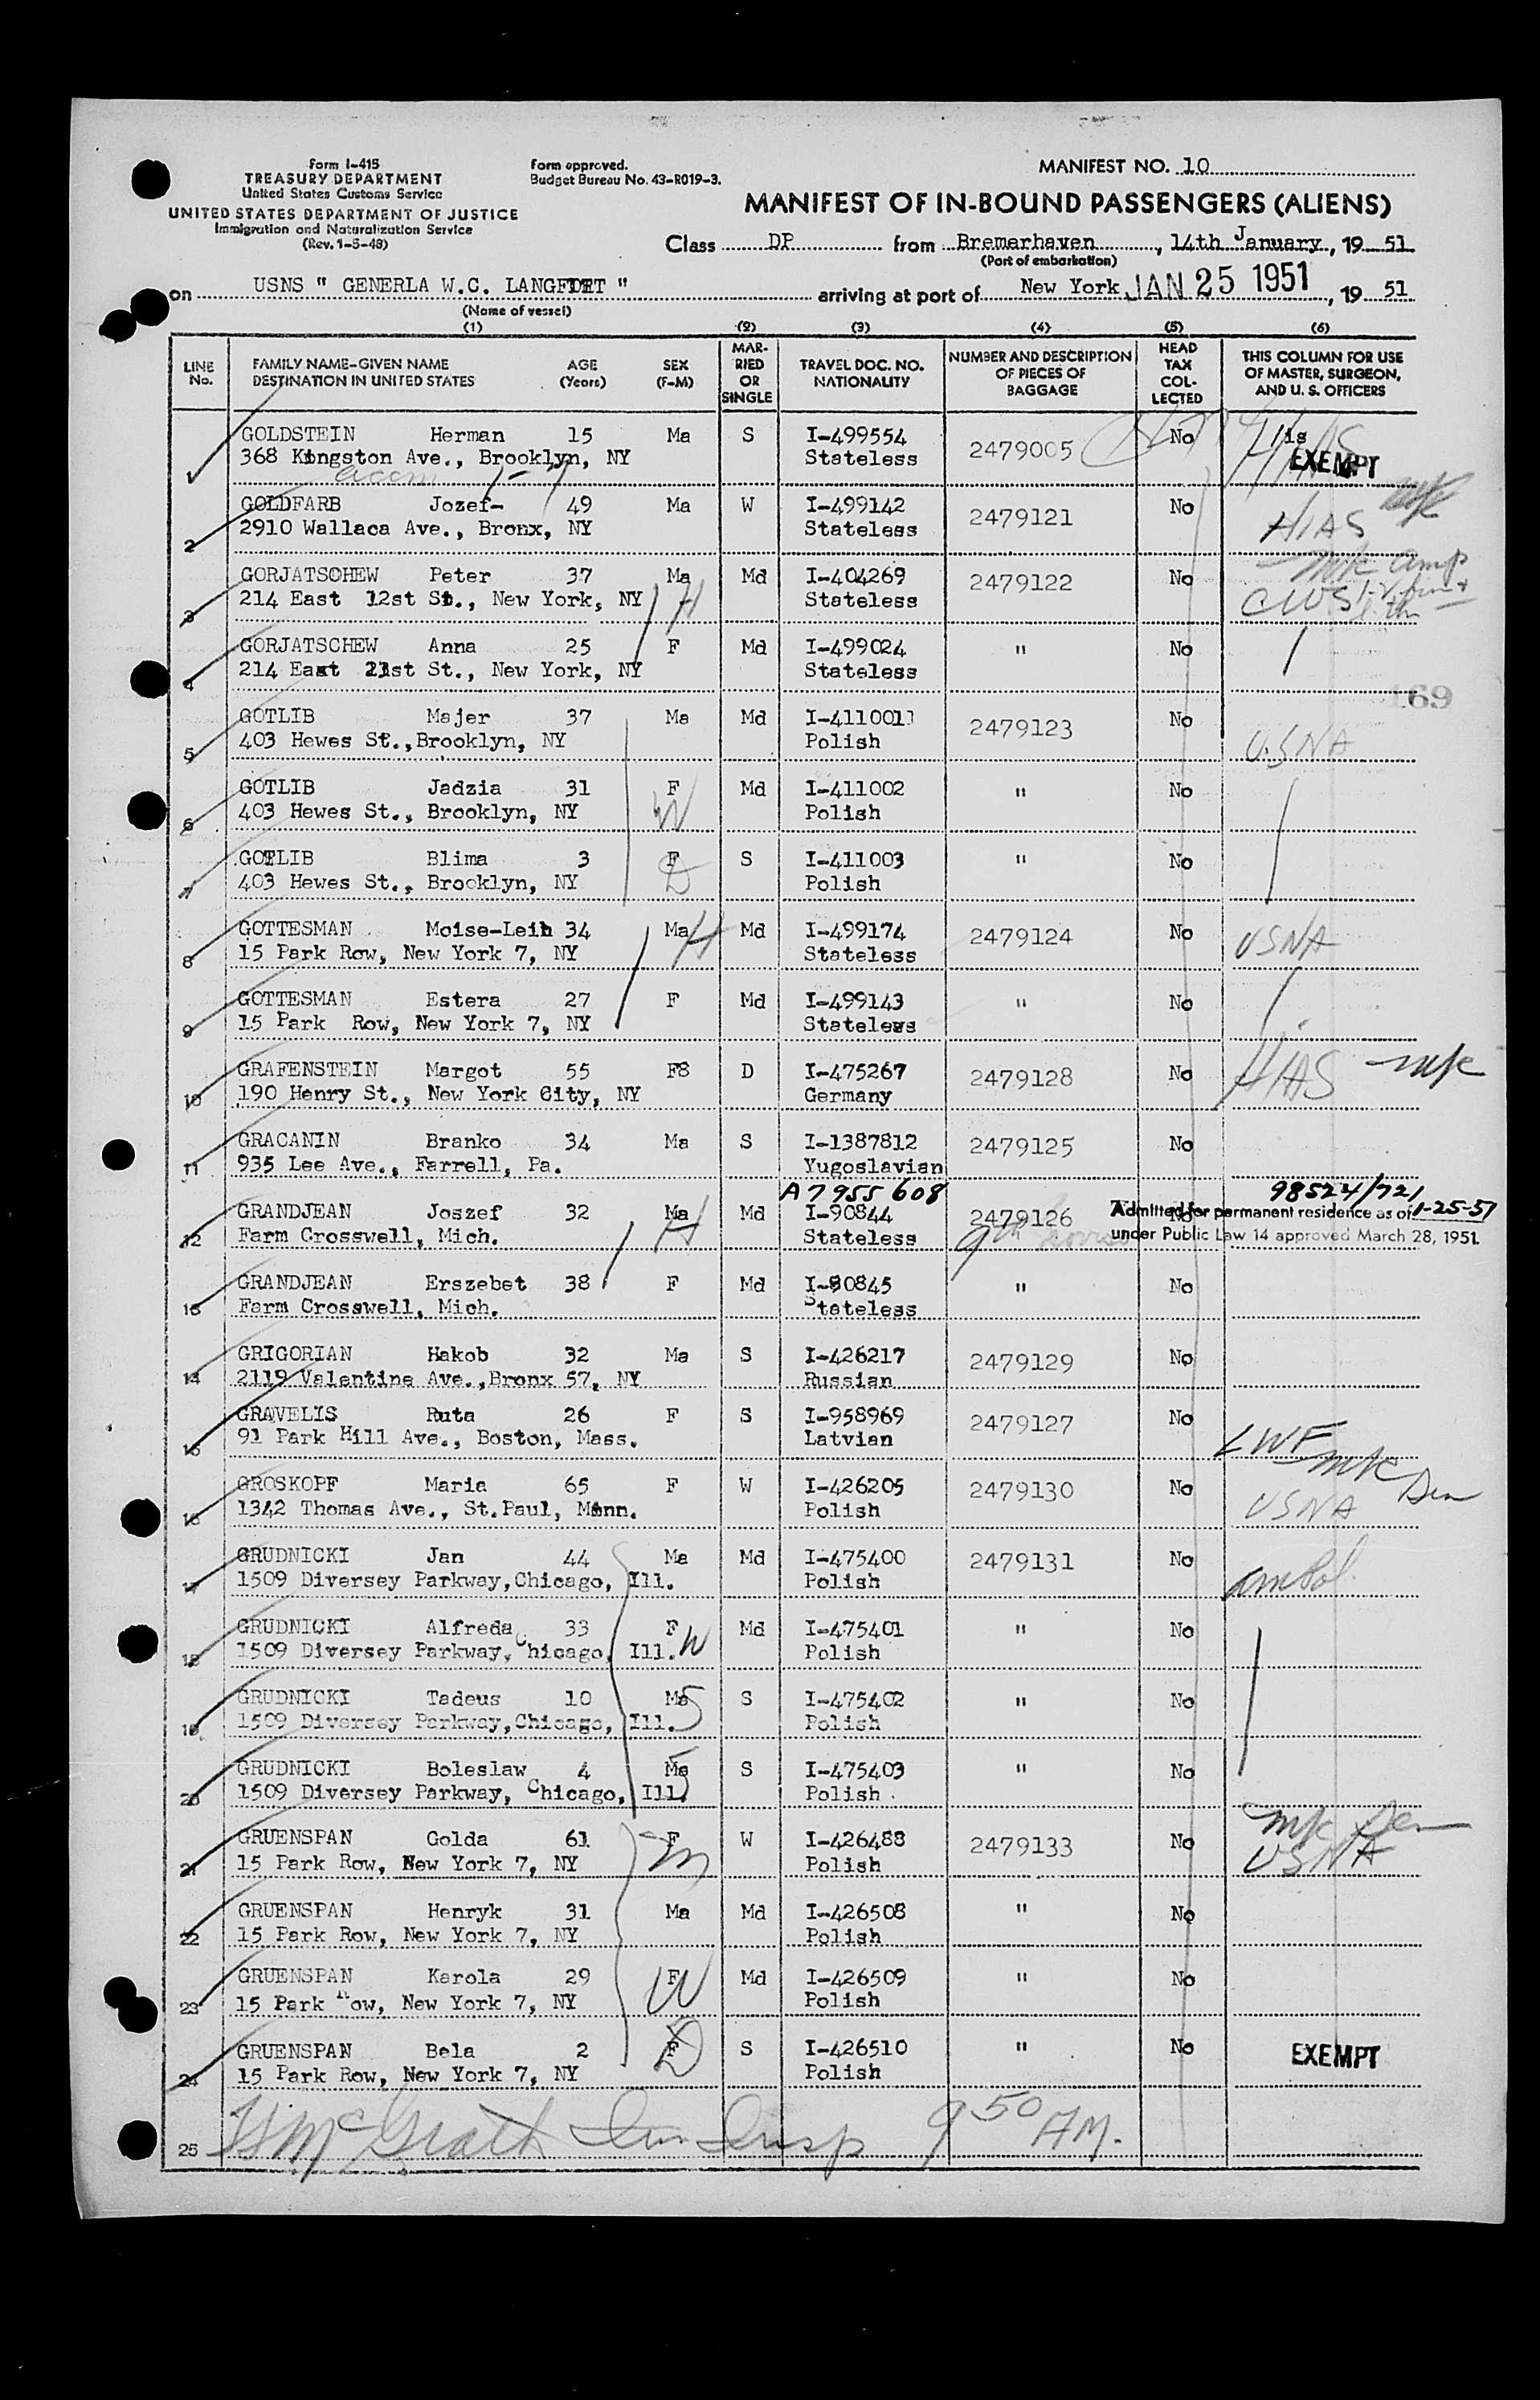 Form I-415
TREASURY DEPARTMENT
United States Customs Service
UNITED STATES DEPARTMENT OF JUSTICE
Immigration and Naturalization Service
(Rev. 1-5-48)
Form approved.
Budget Bureau No. 43-R019-3.
MANIFEST NO. 10
MANIFEST OF IN-BOUND PASSENGERS (ALIENS)
Class DP from Bremerhaven, 14th January, 19 51
(Port of embarkation)
on USNS " GENERLA W.C. LANGFITT " arriving at port of New York JAN 25 1951, 19 51
(Name of vessel)
(1) (2) (3) (4) (5) (6)
LINE No. FAMILY NAME-GIVEN NAME DESTINATION IN UNITED STATES AGE (Years) SEX (F-M) MARRIED OR SINGLE TRAVEL DOC. NO. NATIONALITY NUMBER AND DESCRIPTION OF PIECES OF BAGGAGE HEAD TAX COLLECTED THIS COLUMN FOR USE OF MASTER, SURGEON, AND U. S. OFFICERS
1 GOLDSTEIN Herman 15 Ma S I-499554 2479005 No HIAS
368 Kingston Ave., Brooklyn, NY Stateless EXEMPT
2 GOLDFARB Jozef- 49 Ma W I-499142 2479121 No HIAS
2910 Wallaca Ave., Bronx, NY Stateless
3 GORJATSCHEW Peter 37 Ma H Md I-404269 2479122 No CWS
214 East 12st St., New York, NY Stateless
4 GORJATSCHEW Anna 25 F Md I-499024 " No
214 East 21st St., New York, NY Stateless
169
5 GOTLIB Majer 37 Ma Md I-411001 2479123 No USNA
403 Hewes St.,Brooklyn, NY Polish
6 GOTLIB Jadzia 31 F W Md I-411002 " No
403 Hewes St., Brooklyn, NY Polish
7 GOTLIB Blima 3 F D S I-411003 " No
403 Hewes St., Brooklyn, NY Polish
8 GOTTESMAN Moise-Leib 34 Ma H Md I-499174 2479124 No USNA
15 Park Row, New York 7, NY Stateless
9 GOTTESMAN Estera 27 F Md I-499143 " No
15 Park Row, New York 7, NY Stateless
10 GRAFENSTEIN Margot 55 F8 D I-475267 2479128 No HIAS
190 Henry St., New York City, NY Germany
11 GRACANIN Branko 34 Ma S I-1387812 2479125 No
935 Lee Ave., Farrell, Pa. Yugoslavian
A7955 608 98524/721
12 GRANDJEAN Joszef 32 Ma H Md I-90844 2479126 No Admitted for permanent residence as of 1-25-51
Farm Crosswell, Mich. Stateless under Public Law 14 approved March 28, 1951.
13 GRANDJEAN Erszebet 38 F Md I-90845 " No
Farm Crosswell, Mich. Stateless
14 GRIGORIAN Hakob 32 Ma S I-426217 2479129 No
2119 Valentine Ave.,Bronx 57, NY Russian
15 GRAVELIS Ruta 26 F S I-958969 2479127 No LWF
91 Park Hill Ave., Boston, Mass. Latvian
16 GROSKOPF Maria 65 F W I-426205 2479130 No USNA
1342 Thomas Ave., St.Paul, Minn. Polish
17 GRUDNICKI Jan 44 Ma Md I-475400 2479131 No AmPol.
1509 Diversey Parkway,Chicago, Ill. Polish
18 GRUDNICKI Alfreda 33 F W Md I-475401 " No
1509 Diversey Parkway, Chicago, Ill. Polish
19 GRUDNICKI Tadeus 10 Ma S S I-475402 " No
1509 Diversey Parkway,Chicago, Ill. Polish
20 GRUDNICKI Boleslaw 4 Ma S S I-475403 " No
1509 Diversey Parkway, Chicago, Ill. Polish
21 GRUENSPAN Golda 61 F m W I-426488 2479133 No USNA
15 Park Row, New York 7, NY Polish
22 GRUENSPAN Henryk 31 Ma Md I-426508 " No
15 Park Row, New York 7, NY Polish
23 GRUENSPAN Karola 29 F W Md I-426509 " No
15 Park Row, New York 7, NY Polish
24 GRUENSPAN Bela 2 F D S I-426510 " No EXEMPT
15 Park Row, New York 7, NY Polish
25 McGrath Imm Insp 9 50 AM.